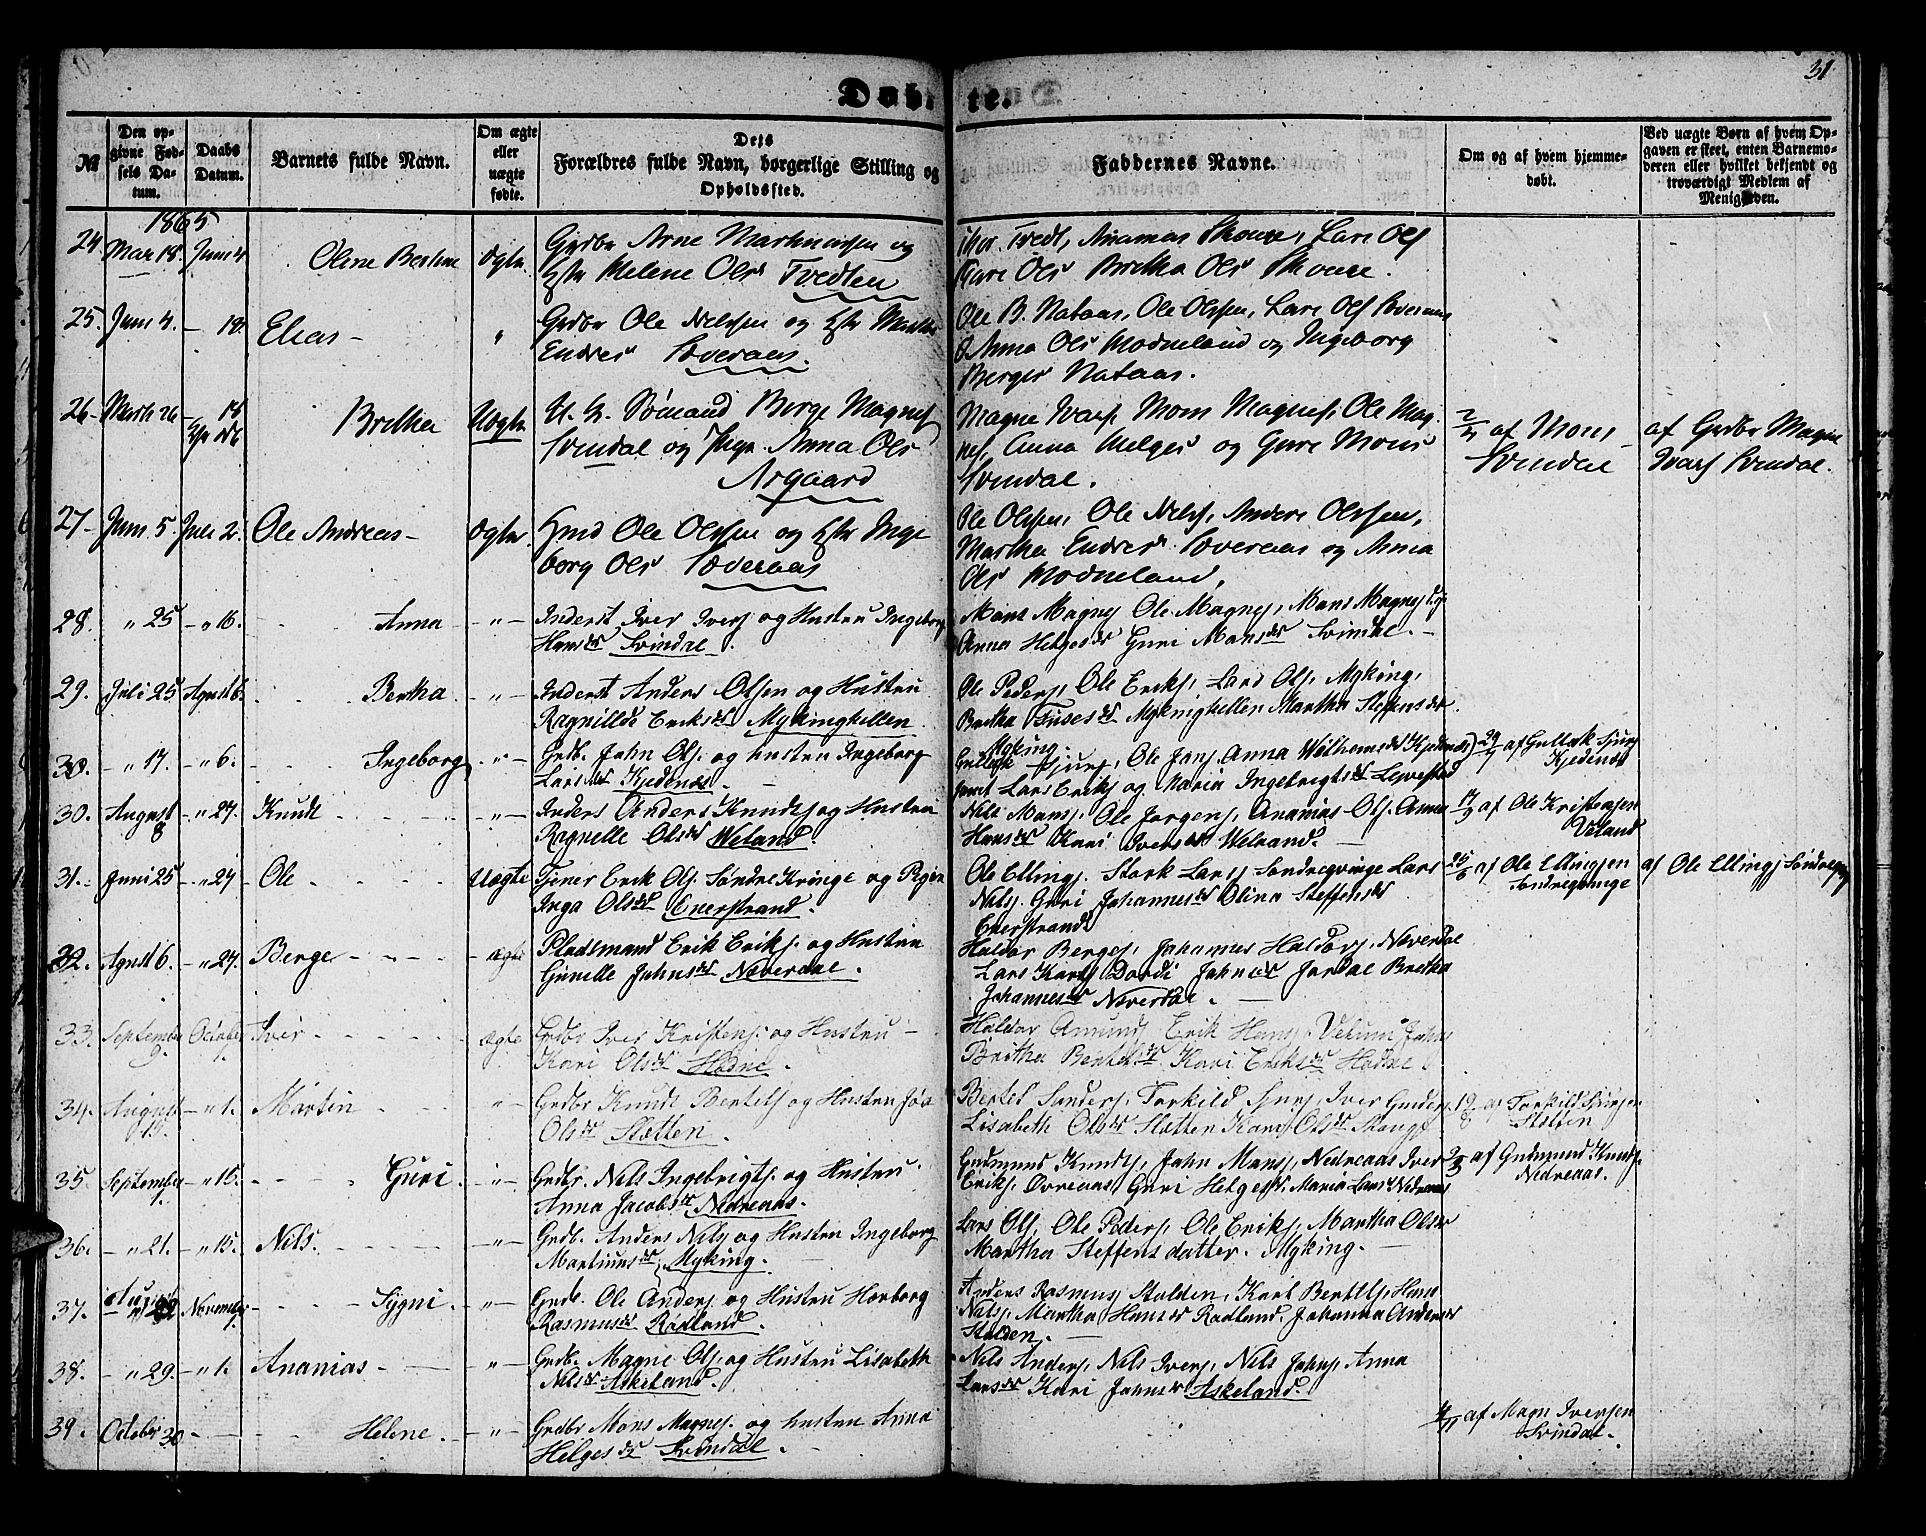 31
Døbte.
№
Den opgivne Fødsels Datum.
Daabs Datum.
Barnets fulde Navn.
Om ægte eller uægte fødte.
Dets Forældres fulde Navn, borgerlige Stilling og Opholdssted.
Faddernes Navne.
Om og af hvem hjemmedøbt.
Ved uægte Børn af hvem Opgaven er skeet, enten Barnemoderen eller hvilket bekjendt og troværdigt Medlem af Menigheden.
1865
24. Mai 18. Juni 4 Oline Bertine ægte. Grdbr Arne Martinussen og
Helene Olsd Tvedten
Tvedt, Ananias Skoure, Lars Ols
Gure Olsd Bretha Olsd Skoure.
25. Juni 4. — 18. Elias — " Grdbr Ole Nelssen og Martha
Endresd Søveraas.
Ole B. Nataas, Ole Olssen, Lars Ols Søveraas
Anna Olsd Modneland og Ingeborg
Bergesd Nataas.
26. Marts 26 — 18 Bretha Uægte U. G. Sømand Berge Magnes
Svendal og Anna Olsd
Argaard
Magne Ivars. Mons Magnes, Ole Mag-
nes, Anna Helges og Gure Mons
Svendal.
af Mons
Svendal
af Grdbr Magne
Ivars Svendal.
27. Juni 5 Juli 2. Ole Andreas — ægte. Hmd Ole Olssen og Inge
borg Olsd Søveraas
Ole Olssen, Ole Nels, Anders Olssen,
Martha Endresd Søveraas og Anna
Olsd Modneland.
28. " 25 — " 16. Anna — " — Inderst Iver Ivers og Hustru Ingeborg
Hansdr Svindal.
Mons Magnes Ole Magnes, Mons Magnes
Anna Helgesdr Guri Monsdr Svindal. —
29. Juli 25 Agust 6. Bertha — " — Inderst Anders Olsen og Hustru
Ragnillde Eriksdr Mykinghellen
Ole Peders, Ole Eriks, Lars Ols, Myking,
Bertha Mykinghellen Martha Steffensdr
Myking.
30. " 17. — " 6. Ingeborg — " — Grdb. John Ols. og hustru Ingeborg
Larsdr Kjedenæs. —
Gulleik Sjurs, Ole Jans. Anna Wilhomsdr Kjedenæs
samt Lars Eriks og Maria Ingebrigtsdr Leirestad
af Gulleik Sjurs
Kjedenæs
30. August 8 — " 27. Knudt — " — Anders Knuds og Hustru
Ragnelle Olsdr Weland.
Nils Mons, Ole Jørgens, Ananias Ols. Anna
Hansdr Kari Iversdr Weland. —
af Ole Kristensen
Veland
31. Juni 25 — " 27 Ole Uægte Tjener Erik Ols. Søndre Kvinge og Pigen
Inga Olsdr Enerstrand.
Ole Ellings. Stork Lars Søndreqvinge Lars
Nils. Guri Johannesdr Olina Steffensdr
Enerstrand
af Ole Ellingsen
Søndreqvinge
af Ole Ellings Søndreqving
32. Agust 6. — " 27. Berge ægte Pladsmand Erik Eriks. og Hustru
Gunelle Johnsdr Neverdal.
Haldor Berges, Johannes Haldors, Neverdal
Lars Dordi Johnsdr Jordal Bretha
Johannesdr Neverdal. —
33. September 9. October Iver ægte Grdbr Iver Kristens. og Hustru —
Kari Olsdr Hodne.
Haldor Amunds, Erik Hans, Johns
Britha Bertelsdr Kari Eriksdr Hodne
34. August 15. — " 1. Mortin — " — Grdbr Knudt Bertels og Hustru
Olsdr Sletten.
Bertel Torkild Sjurs, Iver
Lisabeth Olsdr Sletten Kari Olsdr
af Torkild Sjursen
Sletten
35. September 1. — " 15. Guri. — " — Grdbr. Nils Ingebrigts. og Hustru
Anna Jacobsdr Nedreaas.
Gudmund Knuds, John Mons, Nedreaas Iver
Eriks. Øvreaas, Guri Helgesdr, Maria Larsd Nedreaas
af Gudmund Knuds
Nedreaas.
36. — " 21. — " 15. Nils. — " — Grdb. Anders Nils og Hustru Ingeborg
Martinusdr Myking.
Lars Ols, Ole Peders, Ole Eriks, Martha Olsdr
Martha Steffens datter. Myking. —
37. 22 November Sygni. — " — Grdb. Ole Anders. og Hustru Herborg
Rasmusdr Radland.
Anders Rasmus Stolden, Karl Bertels, Hans
Nils, Martha Hansdr Radland. Johanna Andersdr
Stolden.
38. — " 29. — " 1. Ananias — " — Grdb. Magne Ols. og Hustru Lisabeth
Nilsdr Askeland.
Nils Anders, Nils Ivers, Nils Johns, Anna
Larsdr Kari Johnsdr Askeland.
39. October 30 — Helene. — " — Grdbr Mons Magnes. og hustru Anna
Helgesdr Svindal. —
af Magn Iversen
Svindal.